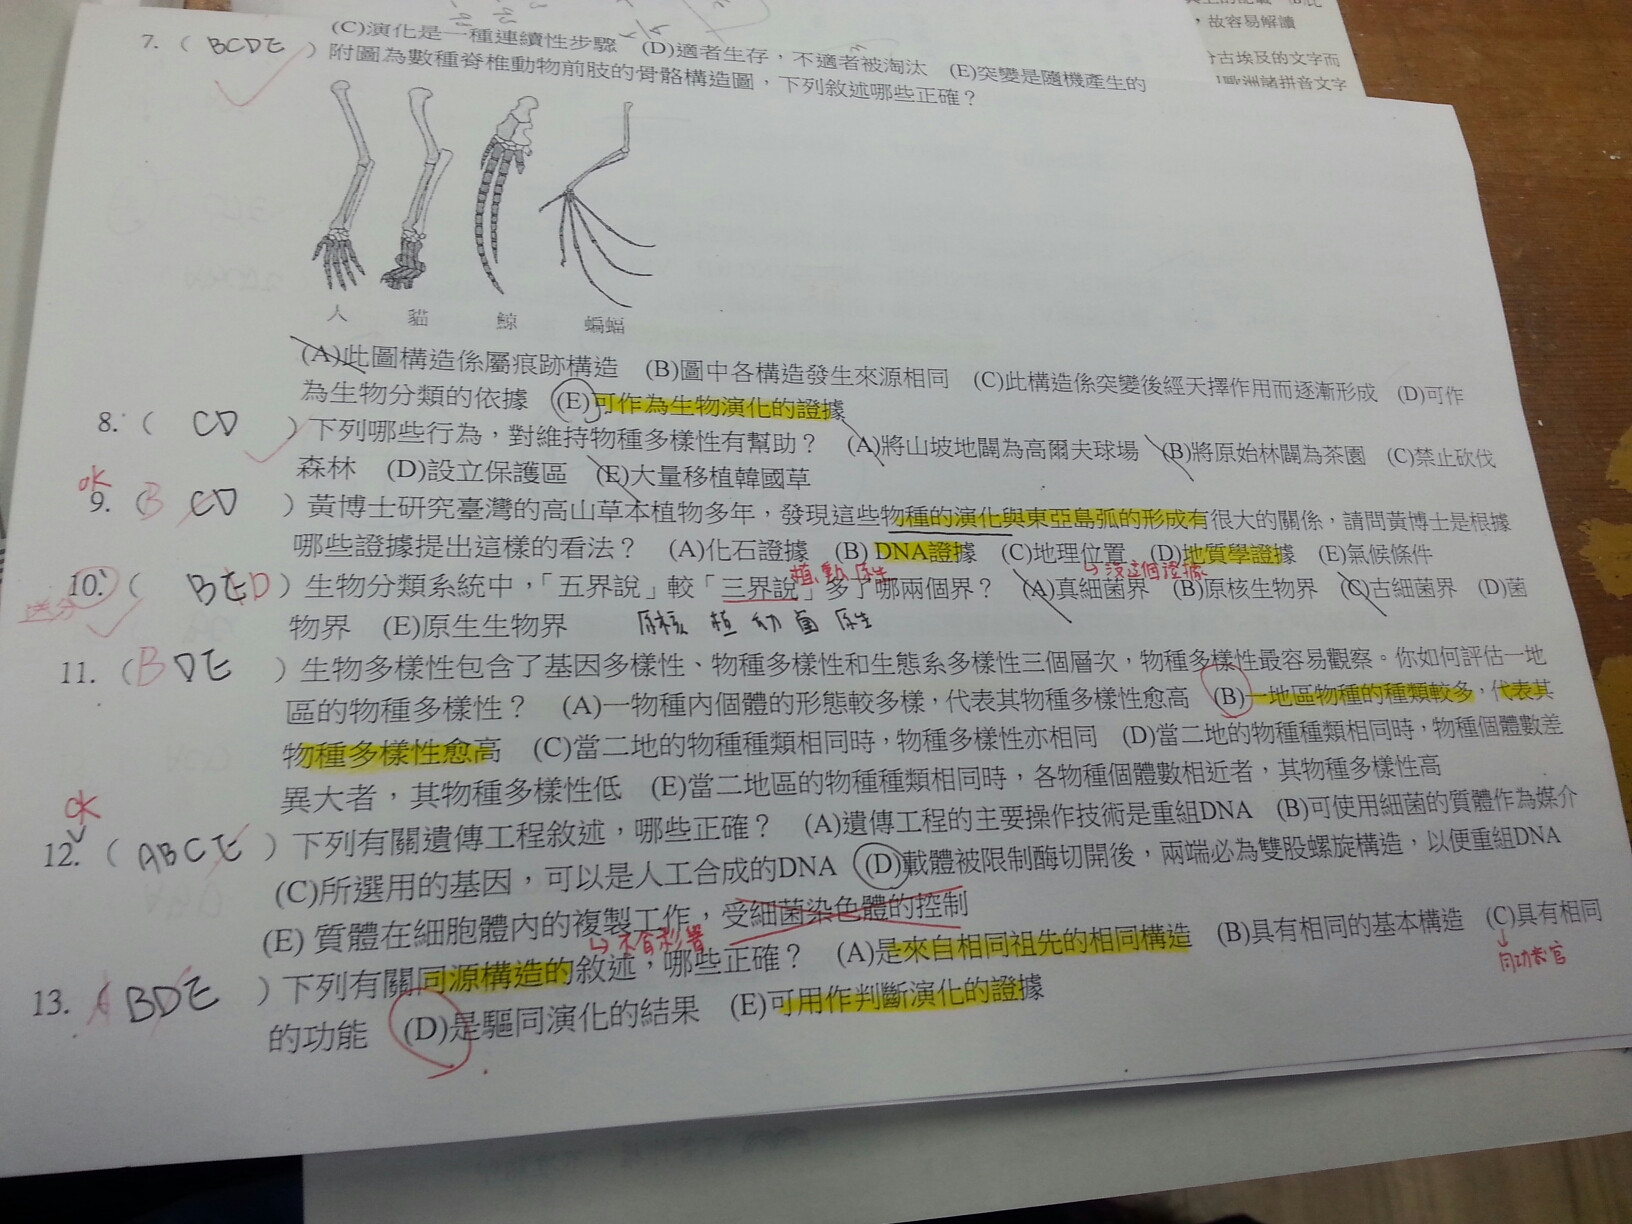 (C)演化是一種連續性步驟 (D)適者生存，不適者被淘汰 (E)突變是隨機產生的
，故容易解讀
古埃及的文字而
歐洲諸拼音文字
7. ( BCDE ) 附圖為數種脊椎動物前肢的骨骼構造圖，下列敘述哪些正確？
人 貓 鯨 蝙蝠
(A)此圖構造係屬痕跡構造 (B)圖中各構造發生來源相同 (C)此構造係突變後經天擇作用而逐漸形成 (D)可作
為生物分類的依據 (E)可作為生物演化的證據
8. ( CD ) 下列哪些行為，對維持物種多樣性有幫助？ (A)將山坡地闢為高爾夫球場 (B)將原始林闢為茶園 (C)禁止砍伐
森林 (D)設立保護區 (E)大量移植韓國草
ok
9. ( B CD ) 黃博士研究臺灣的高山草本植物多年，發現這些物種的演化與東亞島弧的形成有很大的關係，請問黃博士是根據
哪些證據提出這樣的看法？ (A)化石證據 (B) DNA證據 (C)地理位置 (D)地質學證據 (E)氣候條件
植 動 原生
↳沒這個證據
10. ( BED ) 生物分類系統中，「五界說」較「三界說」多了哪兩個界？ (A)真細菌界 (B)原核生物界 (C)古細菌界 (D)菌
送分
物界 (E)原生生物界 原核 植 動 菌 原生
11. ( B DE ) 生物多樣性包含了基因多樣性、物種多樣性和生態系多樣性三個層次，物種多樣性最容易觀察。你如何評估一地
區的物種多樣性？ (A)一物種內個體的形態較多樣，代表其物種多樣性愈高 (B)一地區物種的種類較多，代表其
物種多樣性愈高 (C)當二地的物種種類相同時，物種多樣性亦相同 (D)當二地的物種種類相同時，物種個體數差
異大者，其物種多樣性低 (E)當二地區的物種種類相同時，各物種個體數相近者，其物種多樣性高
ok
12. ( ABCE ) 下列有關遺傳工程敘述，哪些正確？ (A)遺傳工程的主要操作技術是重組DNA (B)可使用細菌的質體作為媒介
(C)所選用的基因，可以是人工合成的DNA (D)載體被限制酶切開後，兩端必為雙股螺旋構造，以便重組DNA
(E) 質體在細胞體內的複製工作，受細菌染色體的控制
13. A BDE ) 下列有關同源構造的敘述，哪些正確？ (A)是來自相同祖先的相同構造 (B)具有相同的基本構造 (C)具有相同
同功器官
的功能 (D)是驅同演化的結果 (E)可用作判斷演化的證據